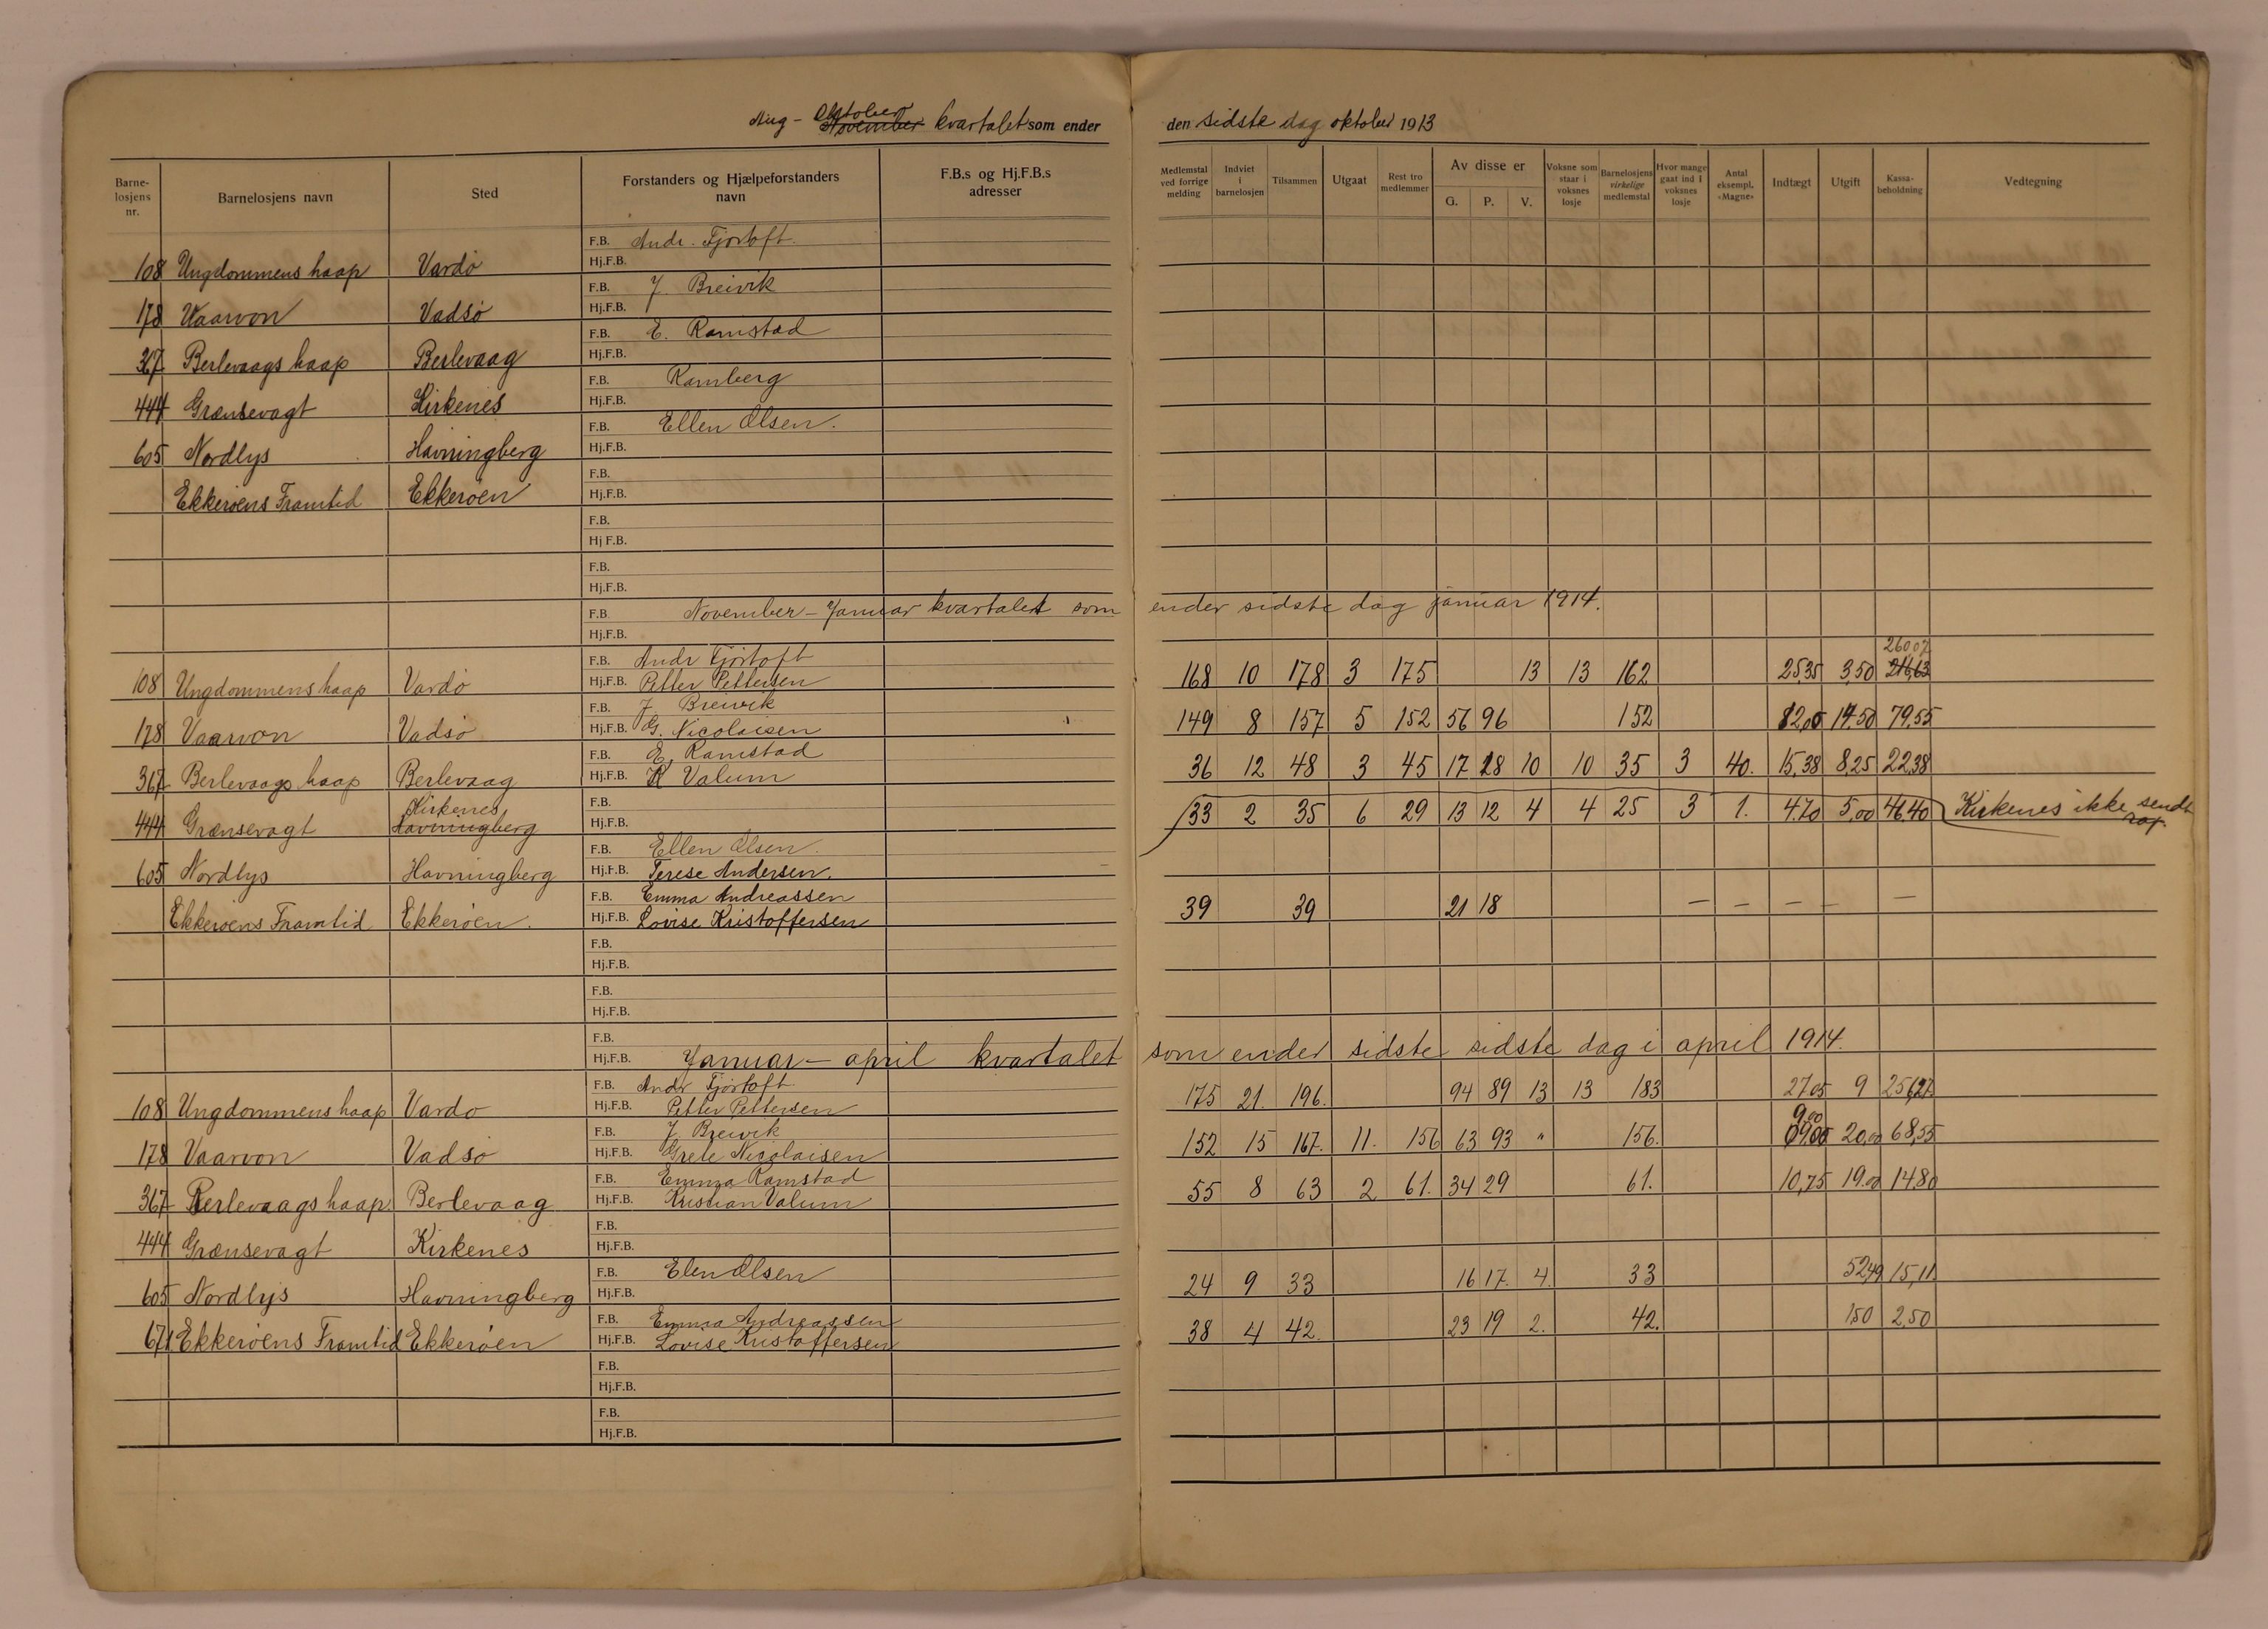 Aug - Oktober November kvartalet som ender den sidste dag oktober 1913
Barnelosjens nr. Barnelosjens navn Sted Forstanders og Hjælpeforstanders navn F.B.s og Hj.F.B.s adresser Medlemstal ved forrige melding Indviet i barnelosjen Tilsammen Utgaat Rest tro medlemmer Av disse er G. P. V. Voksne som staar i voksnes losje Barnelosjens virkelige medlemstal Hvor mange gaat ind i voksnes losje Antal eksempl. «Magne» Indtægt Utgift Kassabeholdning Vedtegning
F.B. Andr. Fjørtoft
108 Ungdommens haap Vardø Hj.F.B.
F.B. J. Breivik
178 Vaarvon Vadsø Hj.F.B.
F.B. E. Ramstad
367 Berlevaags haap Berlevaag Hj.F.B.
F.B. Ramberg
444 Grænsevagt Kirkenes Hj.F.B.
F.B. Ellen Olsen.
605 Nordlys Havningberg Hj.F.B.
F.B.
Ekkerøens Framtid Ekkerøen Hj.F.B.
F.B.
Hj F.B.
F.B.
Hj.F.B.
F.B. November - Januar kvartalet som ender sidste dag januar 1914.
Hj.F.B.
F.B. Andr Fjørtoft 260,07
108 Ungdommens haap Vardø Hj.F.B. Petter Pettersen 168 10 178 3 175 13 13 162 25,35 3,50 216,63
F.B. J Breivik
178 Vaarvon Vadsø Hj.F.B. G. Nicolaisen 149 8 157 5 152 56 96 152 82,05 14,50 79,55
F.B. E, Ramstad
367 Berlevaags haap Berlevaag Hj.F.B. K Valum 36 12 48 3 45 17 28 10 10 35 3 40. 15,38 8,25 22,38
F.B. Kirkenes
444 Grænsevagt Havningberg Hj.F.B. 33 2 35 6 29 13 12 4 4 25 3 1. 4.70 5,00 46,40 Kirkenes ikke sendt rap.
F.B. Ellen Olsen.
605 Nordlys Havningberg Hj.F.B. Terese Andersen.
F.B. Emma Andreassen
Ekkerøens Framtid Ekkerøen. Hj.F.B. Lovise Kristoffersen 39 39 21 18 — — — — —
F.B.
Hj.F.B.
F.B.
Hj.F.B.
F.B.
Hj.F.B. Januar - april kvartalet som ender sidste sidste dag i april 1914.
F.B. Andr Fjørtoft
108 Ungdommens haap Vardø Hj.F.B. Petter Pettersen 175 21. 196. 94 89 13 13 183 27,05 9 256,27.
F.B. J Breivik 9,00
178 Vaarvon Vadsø Hj.F.B. Grete Nicolaisen 152 15 167. 11. 156 63 93 " 156. 20,00 68,55
F.B. Emma Ramstad
367 Berlevaags haap. Berlevaag Hj.F.B. Kristian Valum 55 8 63 2 61. 34 29 61. 10,75 19.00 14.80
F.B.
444 Grænsevagt Kirkenes Hj.F.B.
F.B. Elen Olsen
605 Nordlys Havningberg Hj.F.B. 24 9 33 16 17. 4. 33 52,49 15,11
F.B. Emma Andreassen
671 Ekkerøens Framtid Ekkerøen Hj.F.B. Lovise Kristoffersen 38 4 42. 23 19 2. 42. 1,50 2,50
F.B.
Hj.F.B.
F.B.
Hj.F.B.